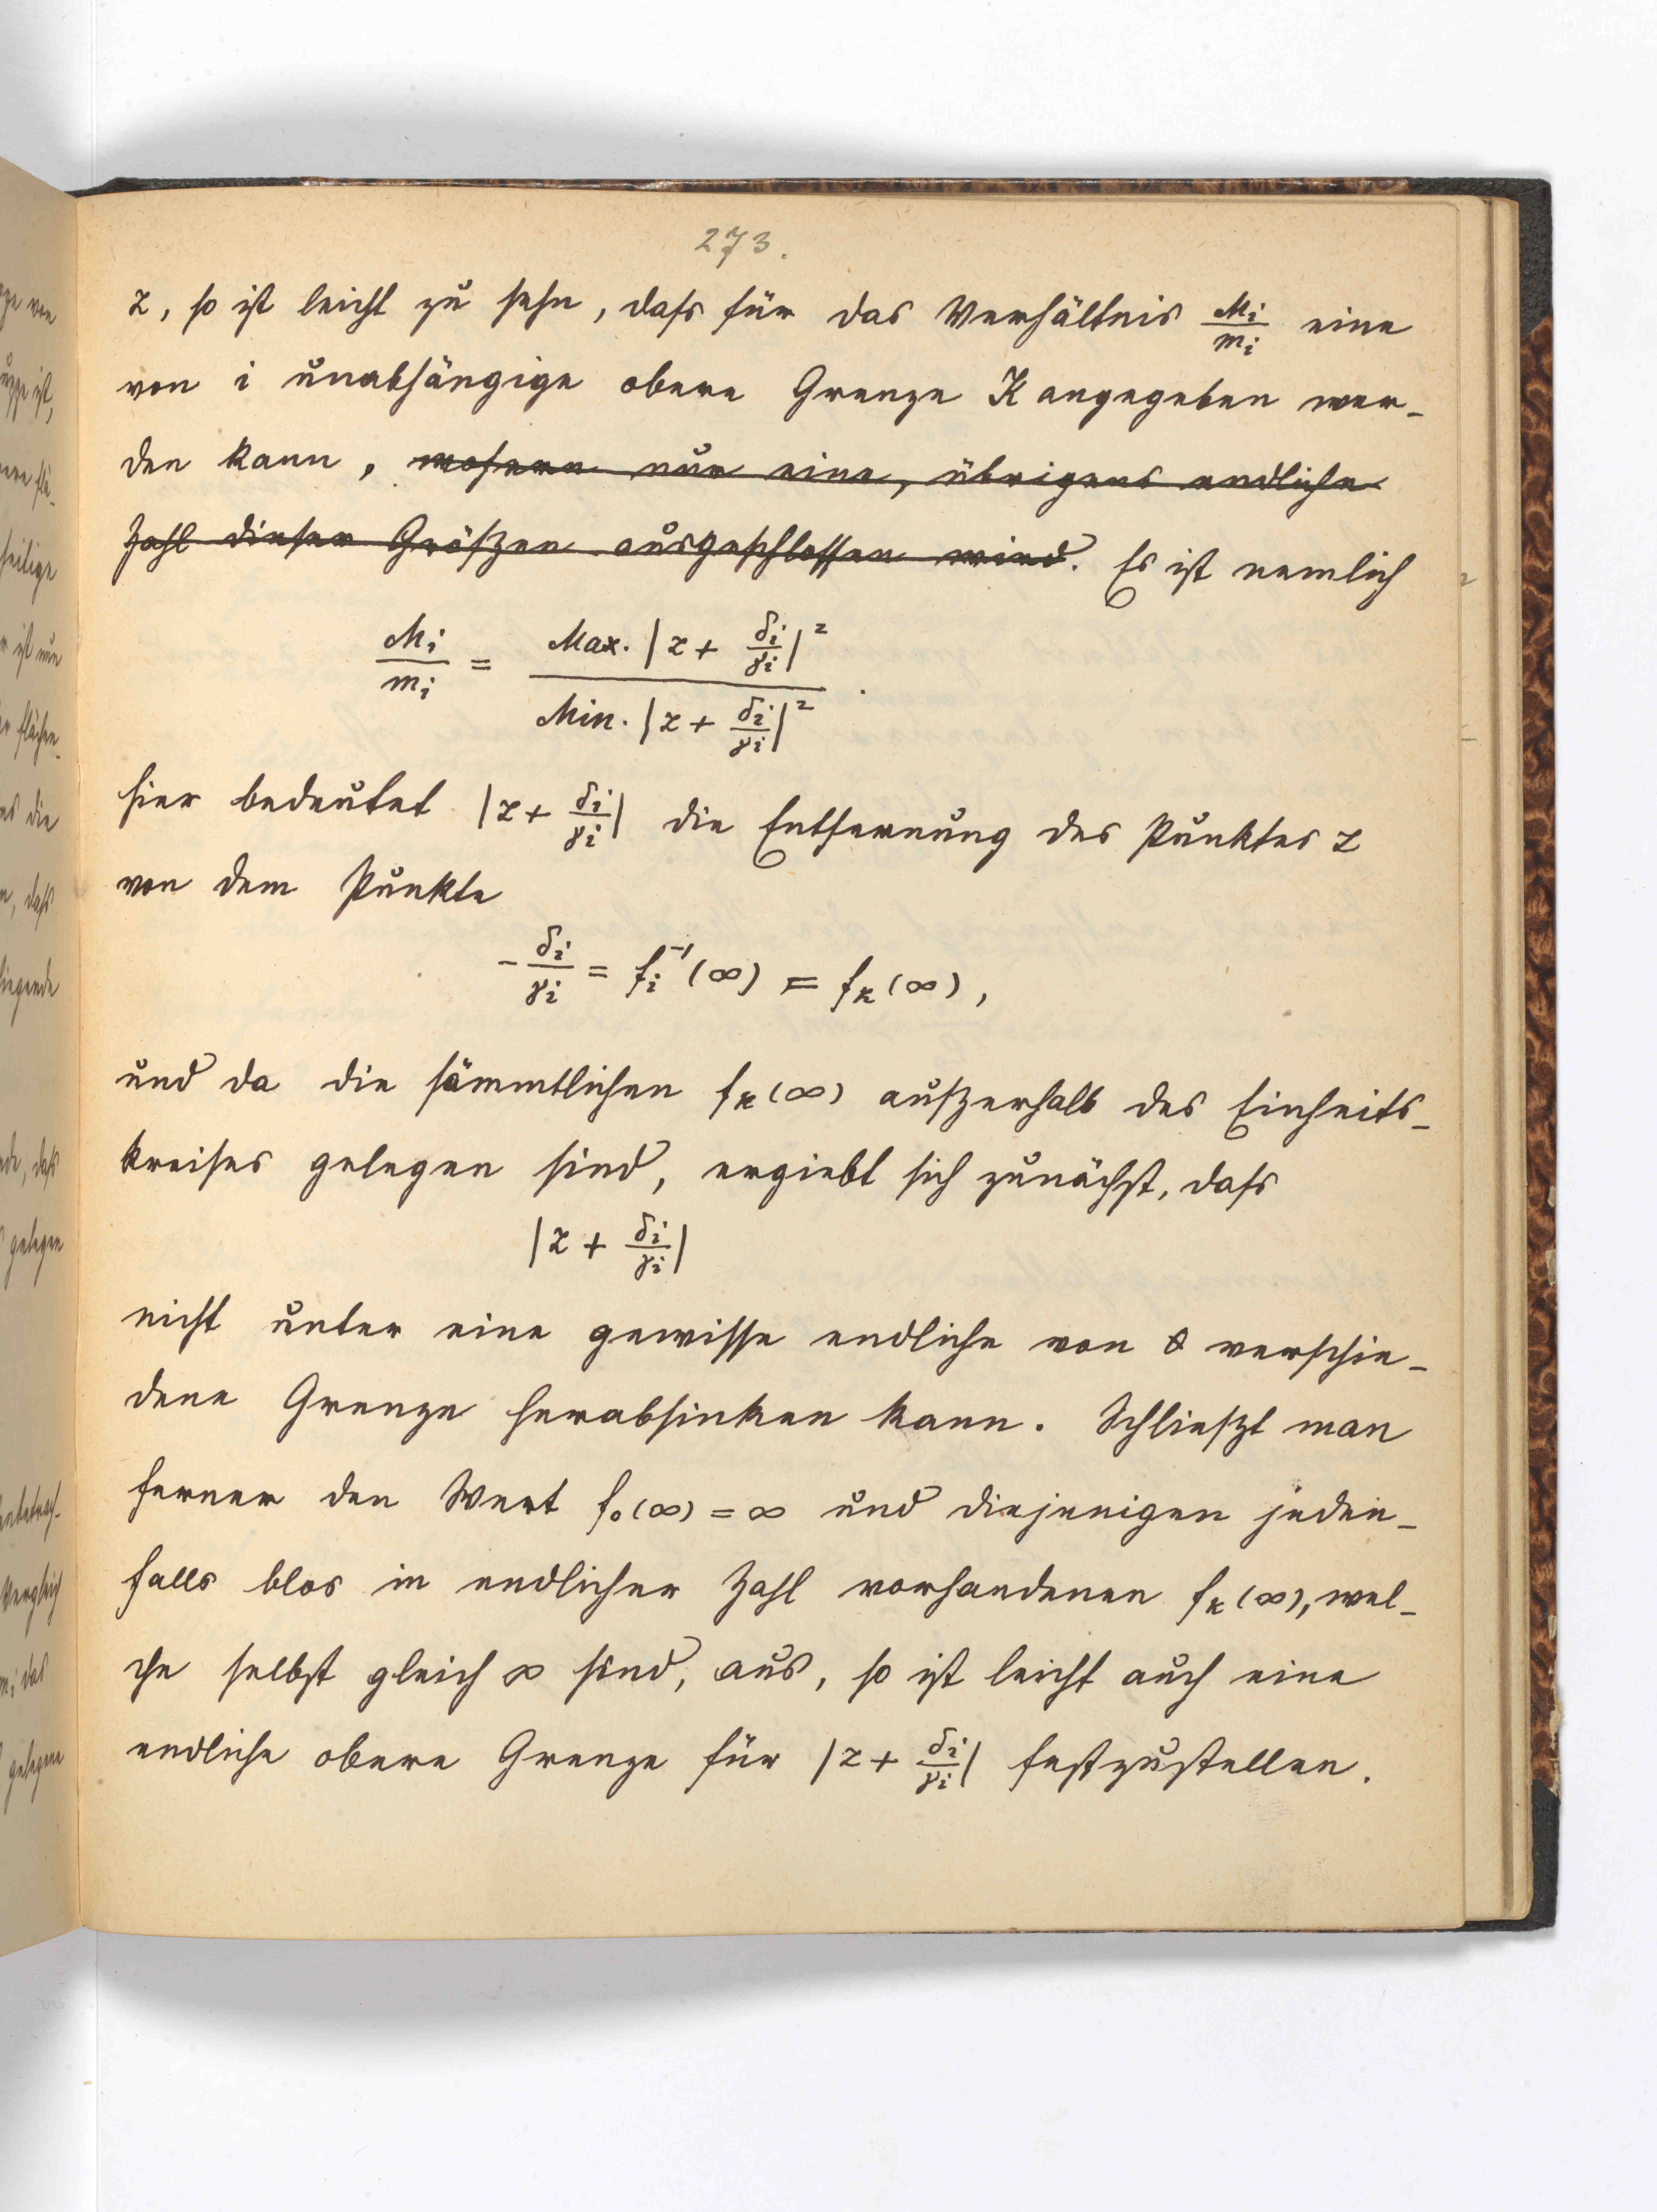 273.
z, so ist leicht zu sehn, dass für das Verhältnis M_i/m_i eine
von i unabhängige obere Grenze K angegeben wer-
den kann, wofern nur eine, übrigens endliche
Zahl dieser Größen ausgeschlossen wird. Es ist nemlich
M_i/m_i = Max. |z + δ_i/γ_i|² / Min. |z + δ_i/γ_i|² .
hier bedeutet |z + δ_i/γ_i| die Entfernung des Punktes z
von dem Punkte
- δ_i/γ_i = f_i⁻¹(∞) = f_k(∞),
und da die sämmtlichen f_k(∞) außerhalb des Einheits-
kreises gelegen sind, ergiebt sich zunächst, dass
|z + δ_i/γ_i|
nicht unter eine gewisse endliche von 0 verschie-
dene Grenze herabsinken kann. Schließt man
ferner den Wert f_0(∞) = ∞ und diejenigen jeden-
falls blos in endlicher Zahl vorhandenen f_k(∞), wel-
che selbst gleich ∞ sind, aus, so ist leicht auch eine
endliche obere Grenze für |z + δ_i/γ_i| festzustellen.